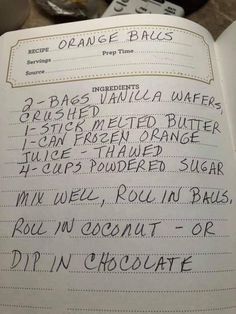 RECIPE ORANGE BALLS
Servings Prep Time
Source
INGREDIENTS
2-BAGS VANILLA WAFERS,
CRUSHED
1-STICK MELTED BUTTER
1-CAN FROZEN ORANGE
JUICE - THAWED
4-CUPS POWDERED SUGAR
MIX WELL, ROLL IN BALLS,
ROLL IN COCONUT - OR
DIP IN CHOCOLATE